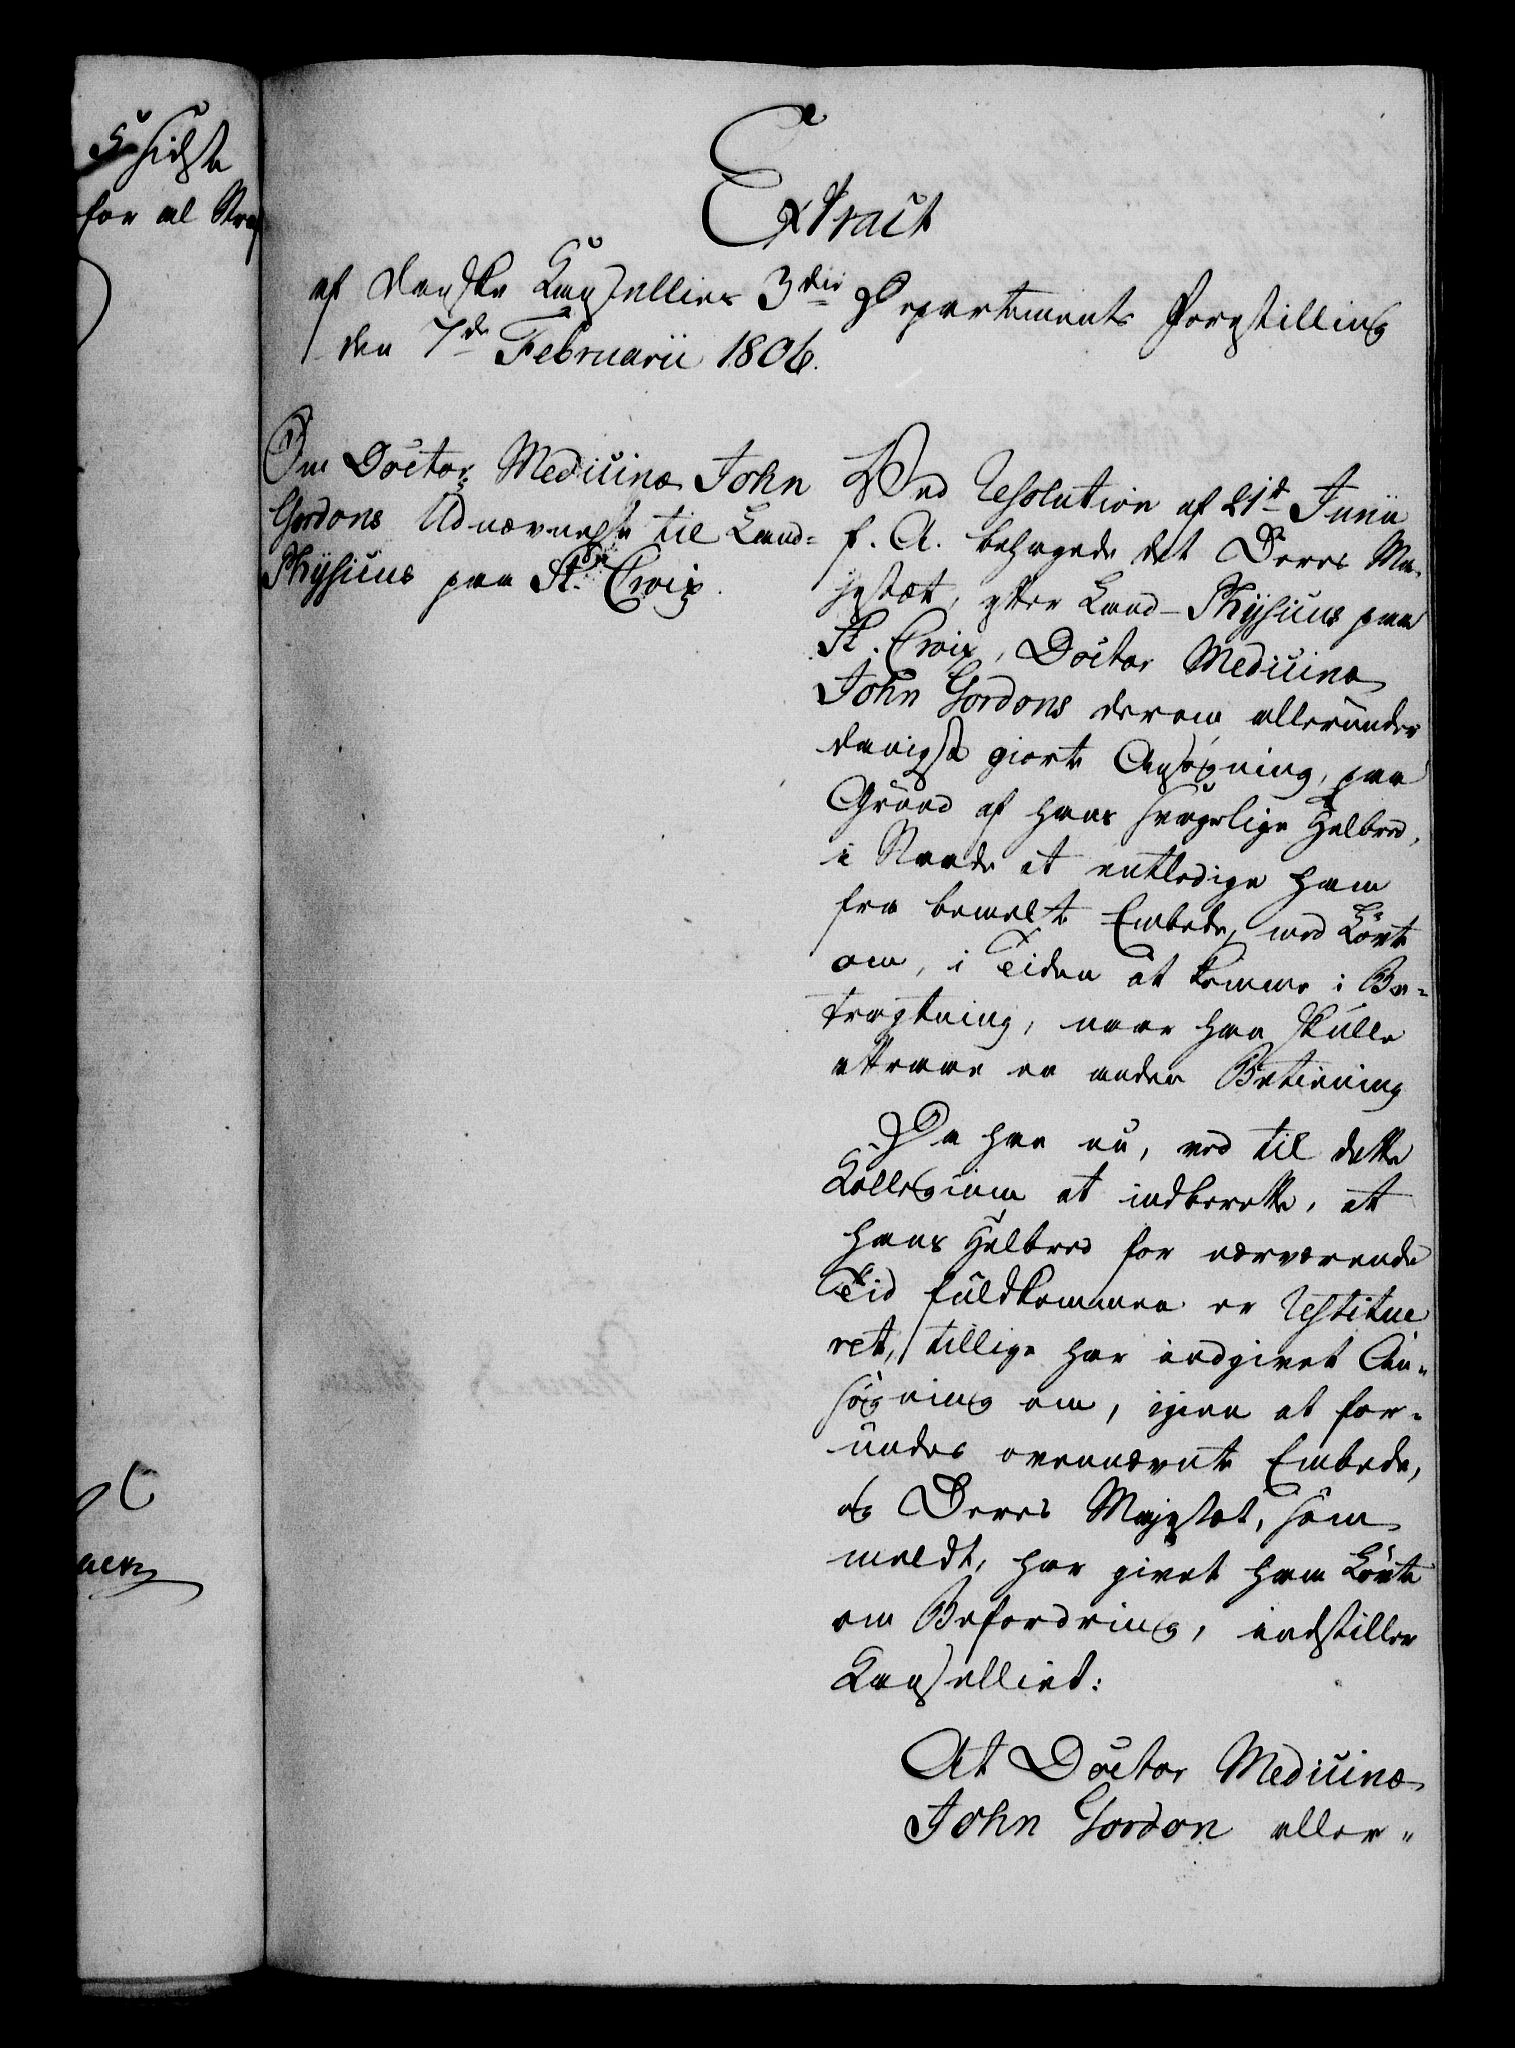 5 sidste
for al
Extract
af Danske Kancelliets 3die Departements Forestilling
den 7de Februarii 1806.
Om Doctor Medicinæ John
Gordons Udnævnelse til Land-
Physicus paa St. Croix.
Ved Resolution af 21de Junii
f. A. behagede det Deres Ma-
jestæt, efter Land-Physicus paa
St. Croix, Doctor Medicinæ
John Gordons derom allerunder
danigst giorte Ansøgning, paa
Grund af hans svagelige Helbred,
i Naade at entledige ham
fra bemeldte Embede, med Løvte
om, i Tiden at komme i Be-
tragtning, naar han skulle
attraae en anden Betiening
Da han nu, ved til dette
Collegium at indberette, at
hans Helbred for nærværende
Tid fuldkommen er Restitue
ret, tillige har indgivet An-
søgning om, igien at for-
undes ovennævnte Embede,
og Deres Majestæt, som
meldt, har givet ham Løvte
om Befordring, indstiller
Kancelliet:
At Doctor Medicinæ
John Gordon aller-